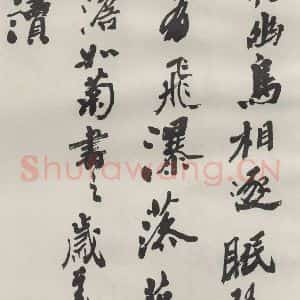 幽鳥相逐眠
有飛瀑落花
澹如菊書之歲
瀆
Shufawang.CN